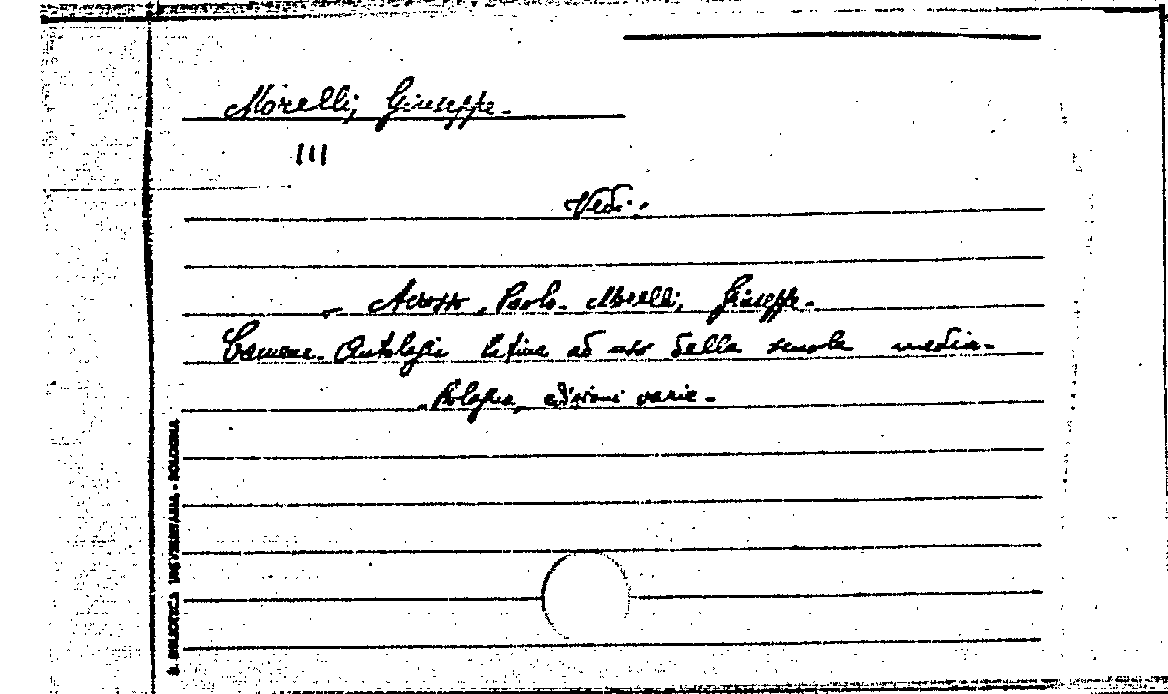 Morelli, Giuseppe.
III
Vedi:
Paolo. Morelli, Giuseppe.
Camene. Antologia latina ad uso della scuola media.
Bologna, edizioni varie.
B. BIBLIOTECA UNIVERSITARIA - BOLOGNA